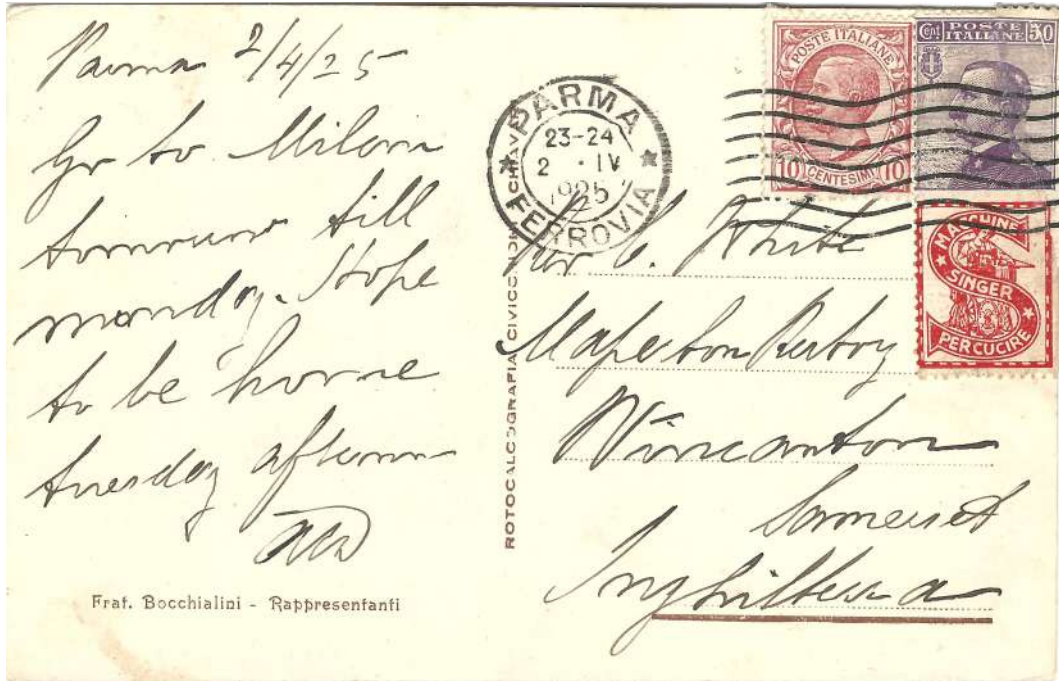 Parma 2/4/25
Go to Milan
tomorrow till
monday. Hope
to be home
tuesday afternn
Frat. Bocchialini - Rappresentanti
ROTOCALCOGRAFIA CIVICCHIONI CHIAV
PARMA
23-24
2 · IV
1925
FERROVIA
POSTE ITALIANE
10 CENTESIMI 10
Cent POSTE 50
ITALIANE
MACCHINE
SINGER
PER CUCIRE
White
Mapeton Rectory
Wincanton
Somerset
Inghilterra